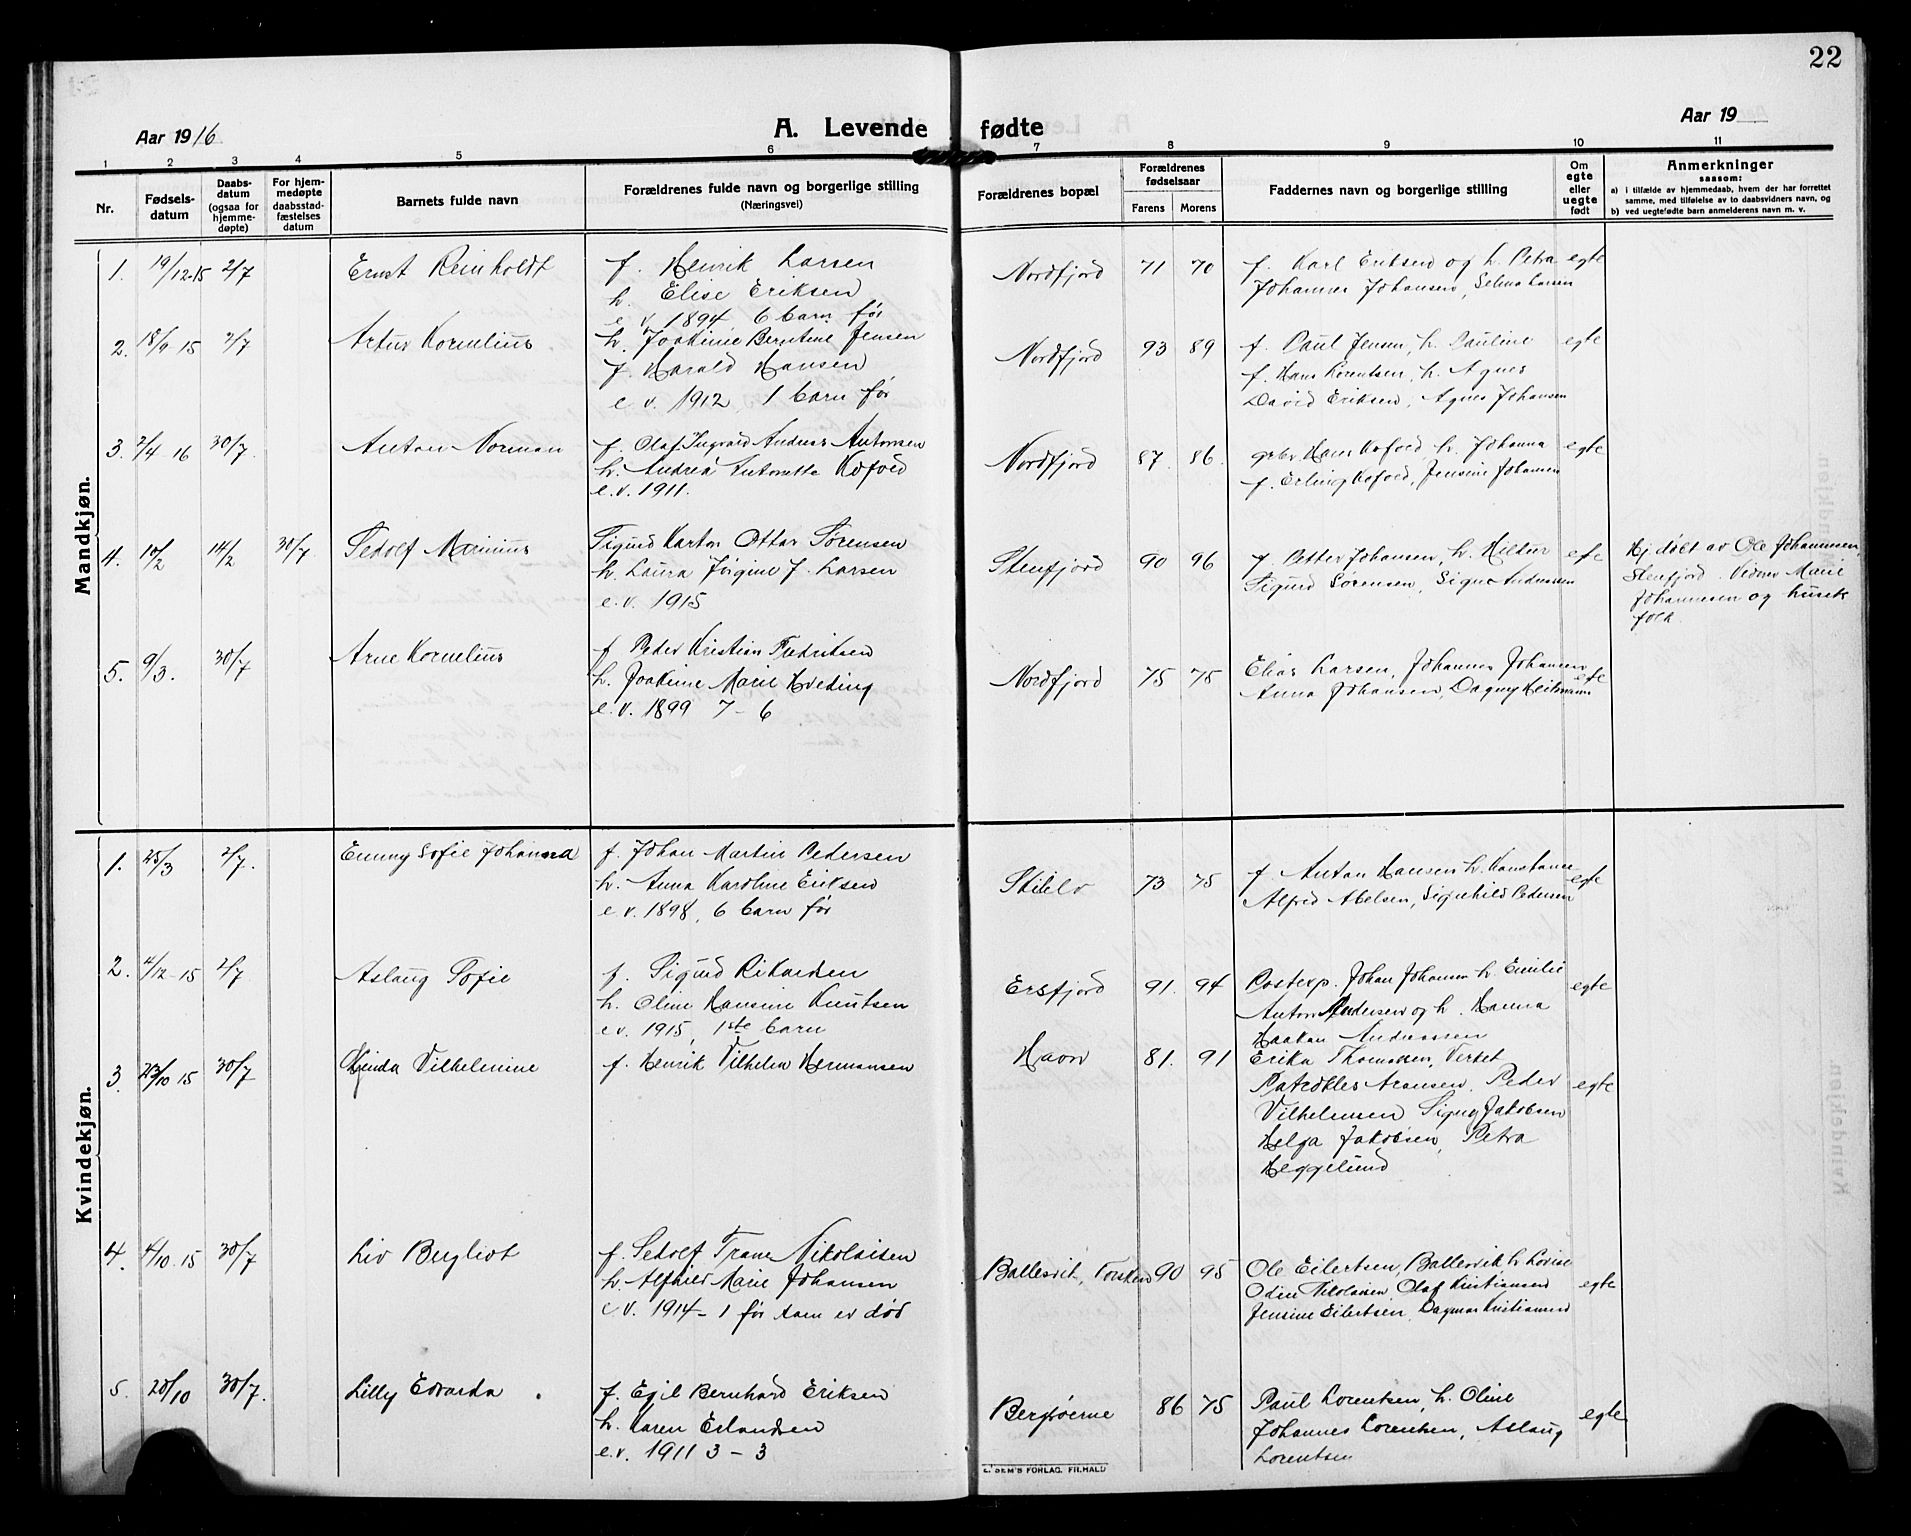 22
Aar 1916
A. Levende fødte
Aar 19
1 2 3 4 5 6 7 8 9 10 11
Nr.
Fødsels-
datum
Daabs-
datum
(ogsaa for
hjemme-
døpte)
For hjem-
medøpte
daabsstad-
fæstelses
datum
Barnets fulde navn
Forældrenes fulde navn og borgerlige stilling
(Næringsvei)
Forældrenes bopæl
Forældrenes
fødselsaar
Farens Morens
Faddernes navn og borgerlige stilling
Om
egte
eller
uegte
født
Anmerkninger
saasom:
a) i tilfælde av hjemmedaab, hvem der har forrettet
samme, med tilføielse av to daabsvidners navn, og
b) ved uegtefødte barn anmelderens navn m. v.
Mandkjøn.
1. 19/12-15 2/7 Ernst Reinholdt f. Henrik Larsen Nordfjord 71 70 f. Karl Eriksen og h. Petra egte
h. Elise Eriksen Johannes Johansen, Selma Larsen
e. v. 1894 6 barn før
2. 18/9 15 2/7 Artur Kornelius h. Joakime Berntine Jensen Nordfjord 93 89 f. Paul Jensen, h. Pauline egte
f. Harald Hansen f. Hans Lorentsen, h. Agnes
e. v. 1912, 1 barn før David Eriksen, Agnes Johansen
3. 2/4 16 30/7. Anton Norman f. Olaf Ingvald Andreas Antonsen Nordfjord 87. 86. Hans Kofoed h. Johanna egte
h. Andrea Antonette Kofoed f. Erling Kofoed, Jensine Johansen
e. v. 1911.
4. 10/2 14/2 30/7. Sedolf Marinius Sigurd Karton Ottar Sørensen Stenfjord 90 96 f. Petter Johansen, h. Hildur egte Hj. døbt av Ole Johannesen,
h. Laura Jørgine f. Larsen Sigurd Sørensen, Signe Andreassen Stenfjord. Vidner Marie
e. v. 1915 Johannesen og husets
folk.
5. 9/3. 30/7 Arne Kornelius f. Peder Kristian Fredriksen Nordfjord 75 75 Elias Larsen, Johannes Johansen egte
h. Joakime Marie Hveding Anna Johansen, Dagny Heitmann
e. v. 1899 7 - 6
Kvindekjøn.
1. 25/3 2/7. Emmy Sofie Johanna f. Johan Martin Pedersen 73 75 f. Anton Hansen h. Konstance egte
h. Anna Karoline Eriksen Alfred Abelsen, Signhild Pedersen
e. v. 1898, 6 barn før
2. 4/12-15 2/7 Aslaug Sofie f. Sigurd Rikardsen Ersfjord 91. 94 Postexp. Johan Johansen h. Emilie egte
h. Oline Hansine Knutsen Anton Pedersen og h. Hanna
e v. 1915, 1ste barn Haakon Andreassen
3. 23/10 15 30/7 Gjenda Vilhelmine f. Henrik Vilhelm Hermansen Havn 81. 91 Erika Thomassen, Verket
Patrokles Aronsen. Peder egte
Vilhelmsen Signy Jakobsen
Helga Jakobsen, Petra
Heggelund
4. 4/10-15 30/7 Liv Bergliot f. Sedolf Trane Nikolaisen Ballesvik, Torsken 90 95 Ole Eilertsen, Ballesvik h. Lovise
h. Alfhild Marie Johansen Odin Nikolaisen, Olaf Kristiansen egte
e v. 1914 - 1 før som er død Jensine Eilertsen, Dagmar Kristiansen
5. 20/10 30/7. Lilly Edvarda f. Egil Bernhard Eriksen Bergsøerne 86 75 Paul Lorentsen, h. Oline
h. Karen Erlandsen Johannes Lorentsen, Aslaug egte
e. v. 1911 3 - 3 Lorentsen
E. SEM'S FORLAG. FR.HALD